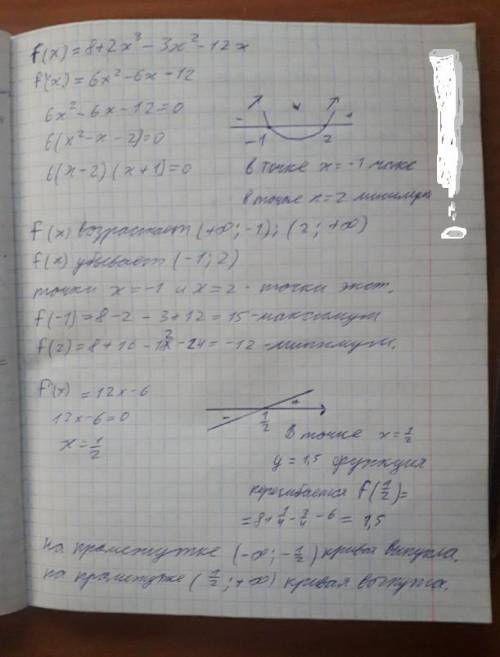 f(x)=8+2x³-3x²-12x
f'(x)=6x²-6x-12
6x²-6x-12=0
6(x²-x-2)=0
6(x-2)(x+1)=0
- +
-1 2
в точке x=-1 макс
в точке x=2 минимум
f(x) возрастает (+∞;-1);(2;+∞)
f(x) убывает (-1;2)
точки x=-1 и x=2 - точки экст.
f(-1)=8-2-3+12=15-максимум
f(2)=8+16-12-24=-12-минимум.
f''(x)=12x-6
12x-6=0
x=1/2
- +
1/2
в точке x=1/2
y=1,5 функция
перегибается f(1/2)=
=8+1/4-3/4-6=1,5
на промежутке (-∞;-1/2) кривая выпукла.
на промежутке (1/2;+∞) кривая вогнута.